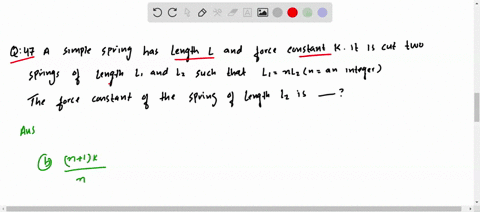 Q:47 A simple spring has length L and force constant K. it is cut two
springs of length L1 and L2 such that L1 = nL2 (n = an integer)
The force constant of the spring of length l2 is — ?
Ans
(b) (n+1)K
n